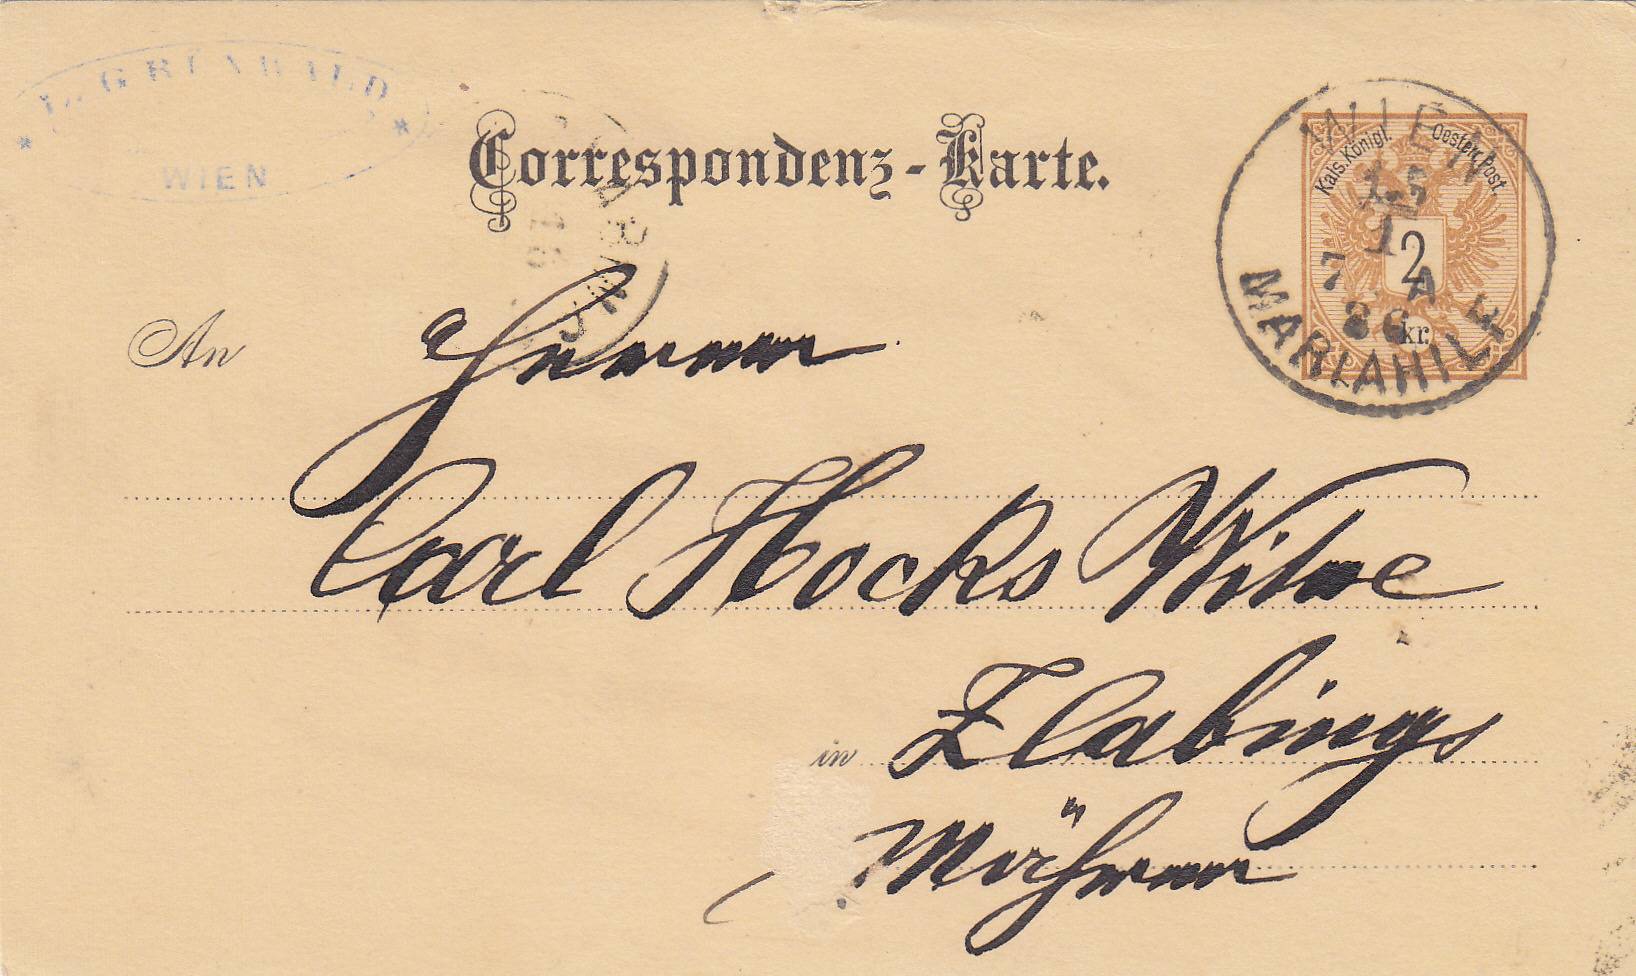 L. GRÜNWALD
WIEN
Correspondenz-Karte.
WIEN
MARIAHILF
7 A
86
Kais. Königl. Oesterr. Post.
2
kr.
An
Herrn
Carl Hocks Witwe
in Zlabings
Mähren